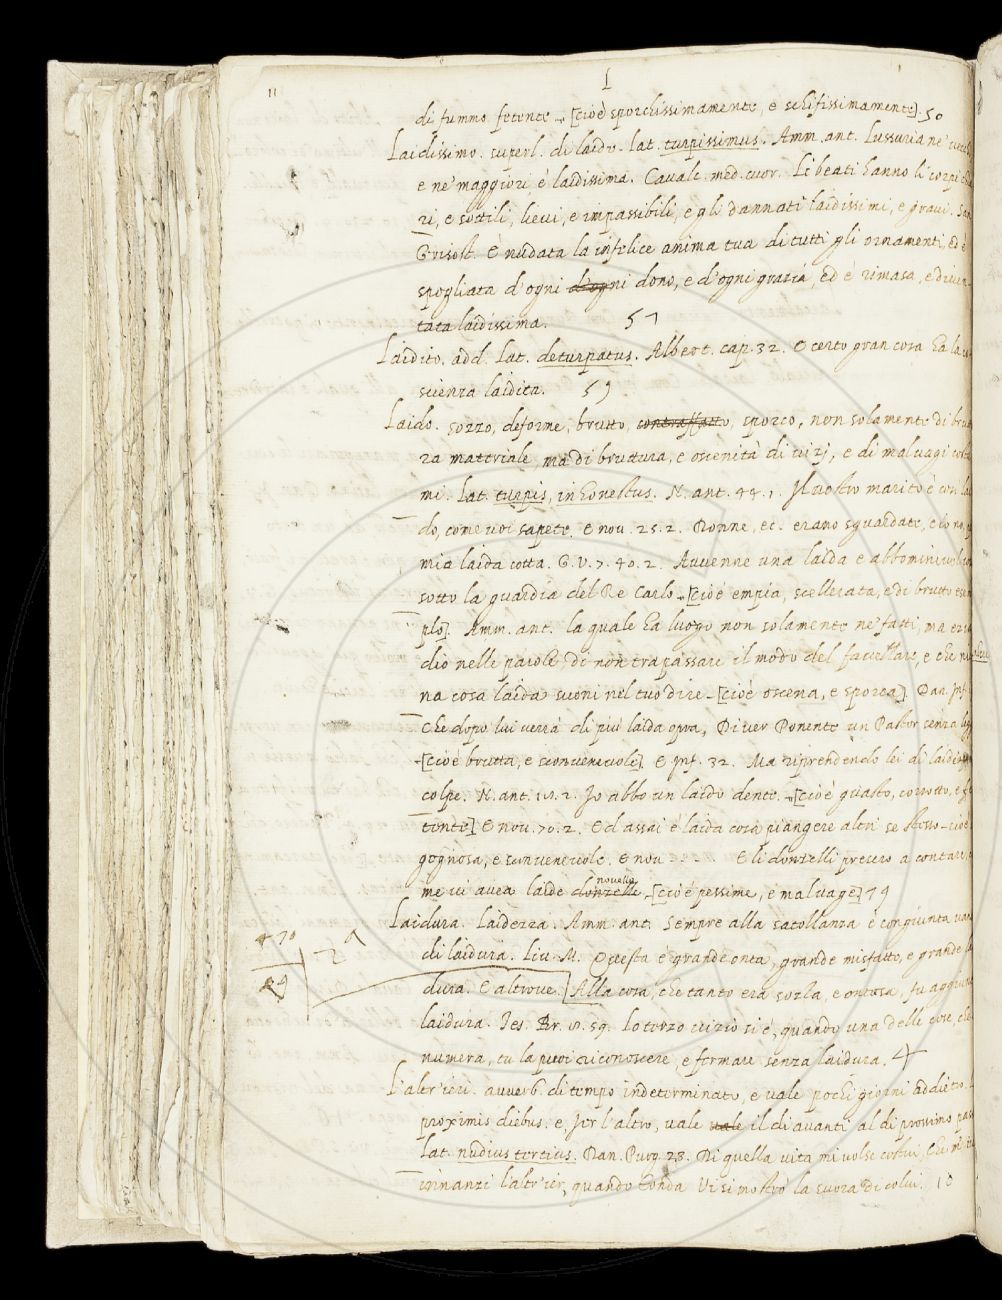 11
L
di fummo fetente - [cioè sporchissimamente, e schifissimamente]. 50
Laidissimo. superl. di laido. lat. turpissimus. Amm. ant. Lussuria ne'
e ne' maggiori è laidissima. Cavalc. med. cuor. Li beati hanno li corpi
ri, e sottili, lievi, e impassibili, e gli dannati laidissimi, e gravi.
Grisost. È nudata la infelice anima tua di tutti gli ornamenti, ed è
spogliata d'ogni d'ogni dono, e d'ogni grazia, ed è rimasa, e diven
tata laidissima. 57
Laidito. add. Lat. deturpatus. Albert. cap. 32. E certo gran cosa ha la co
scienza laidita. 59
Laido. sozzo, deforme, brutto, contraffatto, sporco, non solamente di brut
ra materiale, ma di bruttura, e oscenità di vizj, e di malvagi costu
mi. Lat. turpis, inhonestus. N. ant. 44. 1. Il vostro marito è con lai
do, come voi sapete. E nov. 25. 2. Donne, ec. erano sguardate, e lo no,
mia laida cotta. G. V. 7. 40. 2. Avvenne una laida e abbominivole
sotto la guardia del Re Carlo - [cioè empia, scellerata, e di brutto esem
plo]. Amm. ant. la quale ha luogo non solamente ne' fatti, ma ezia
dio nelle parole, di non trapassare il modo del favellare, e che niu
na cosa laida suoni nel tuo dire - [cioè oscena, e sporca]. Dan. Inf.
Che dopo lui verrà di più laida opra, Di ver Ponente un Pastor senza legg
- [cioè brutta, e sconvenevole] E Inf. 32. Ma riprendendo lei di laide
colpe. N. ant. Io abbo un laido dente. - [cioè guasto, corrotto, e
E nov. 70. 2. Ed assai è laida cosa piangere altri se stesso - cioè
gognosa, e sconvenevole. E nov E li donzelli presero a contare,
me vi avea laide donzelle novelle - [cioè pessime, e malvage] 79
Laidura. Laidezza. Amm. ant. Sempre alla satollanza è congiunta
di laidura. Liv. M. Questa è grande onta, grande misfatto, e grande la
dura. E altrove. [Alla cosa, che tanto era sozza, e ontosa, fu aggiunta
laidura. Tes. Br. Lo terzo vizio si è, quando una delle cose, che
numera, tu la puoi riconoscere, e fermare senza laidura. 4
L'altr'ieri. avverb. di tempo indeterminato, e vale pochi giorni addietro.
proximis diebus. e, Jer l'altro, vale vale il dì avanti al dì prossimo pas
Lat. nudius tertius. Dan. Purg. 23. Di quella vita mi volse costui, Che mi
innanzi l'altr'ier, quando tonda Vi si mostrò la suora di colui. 10